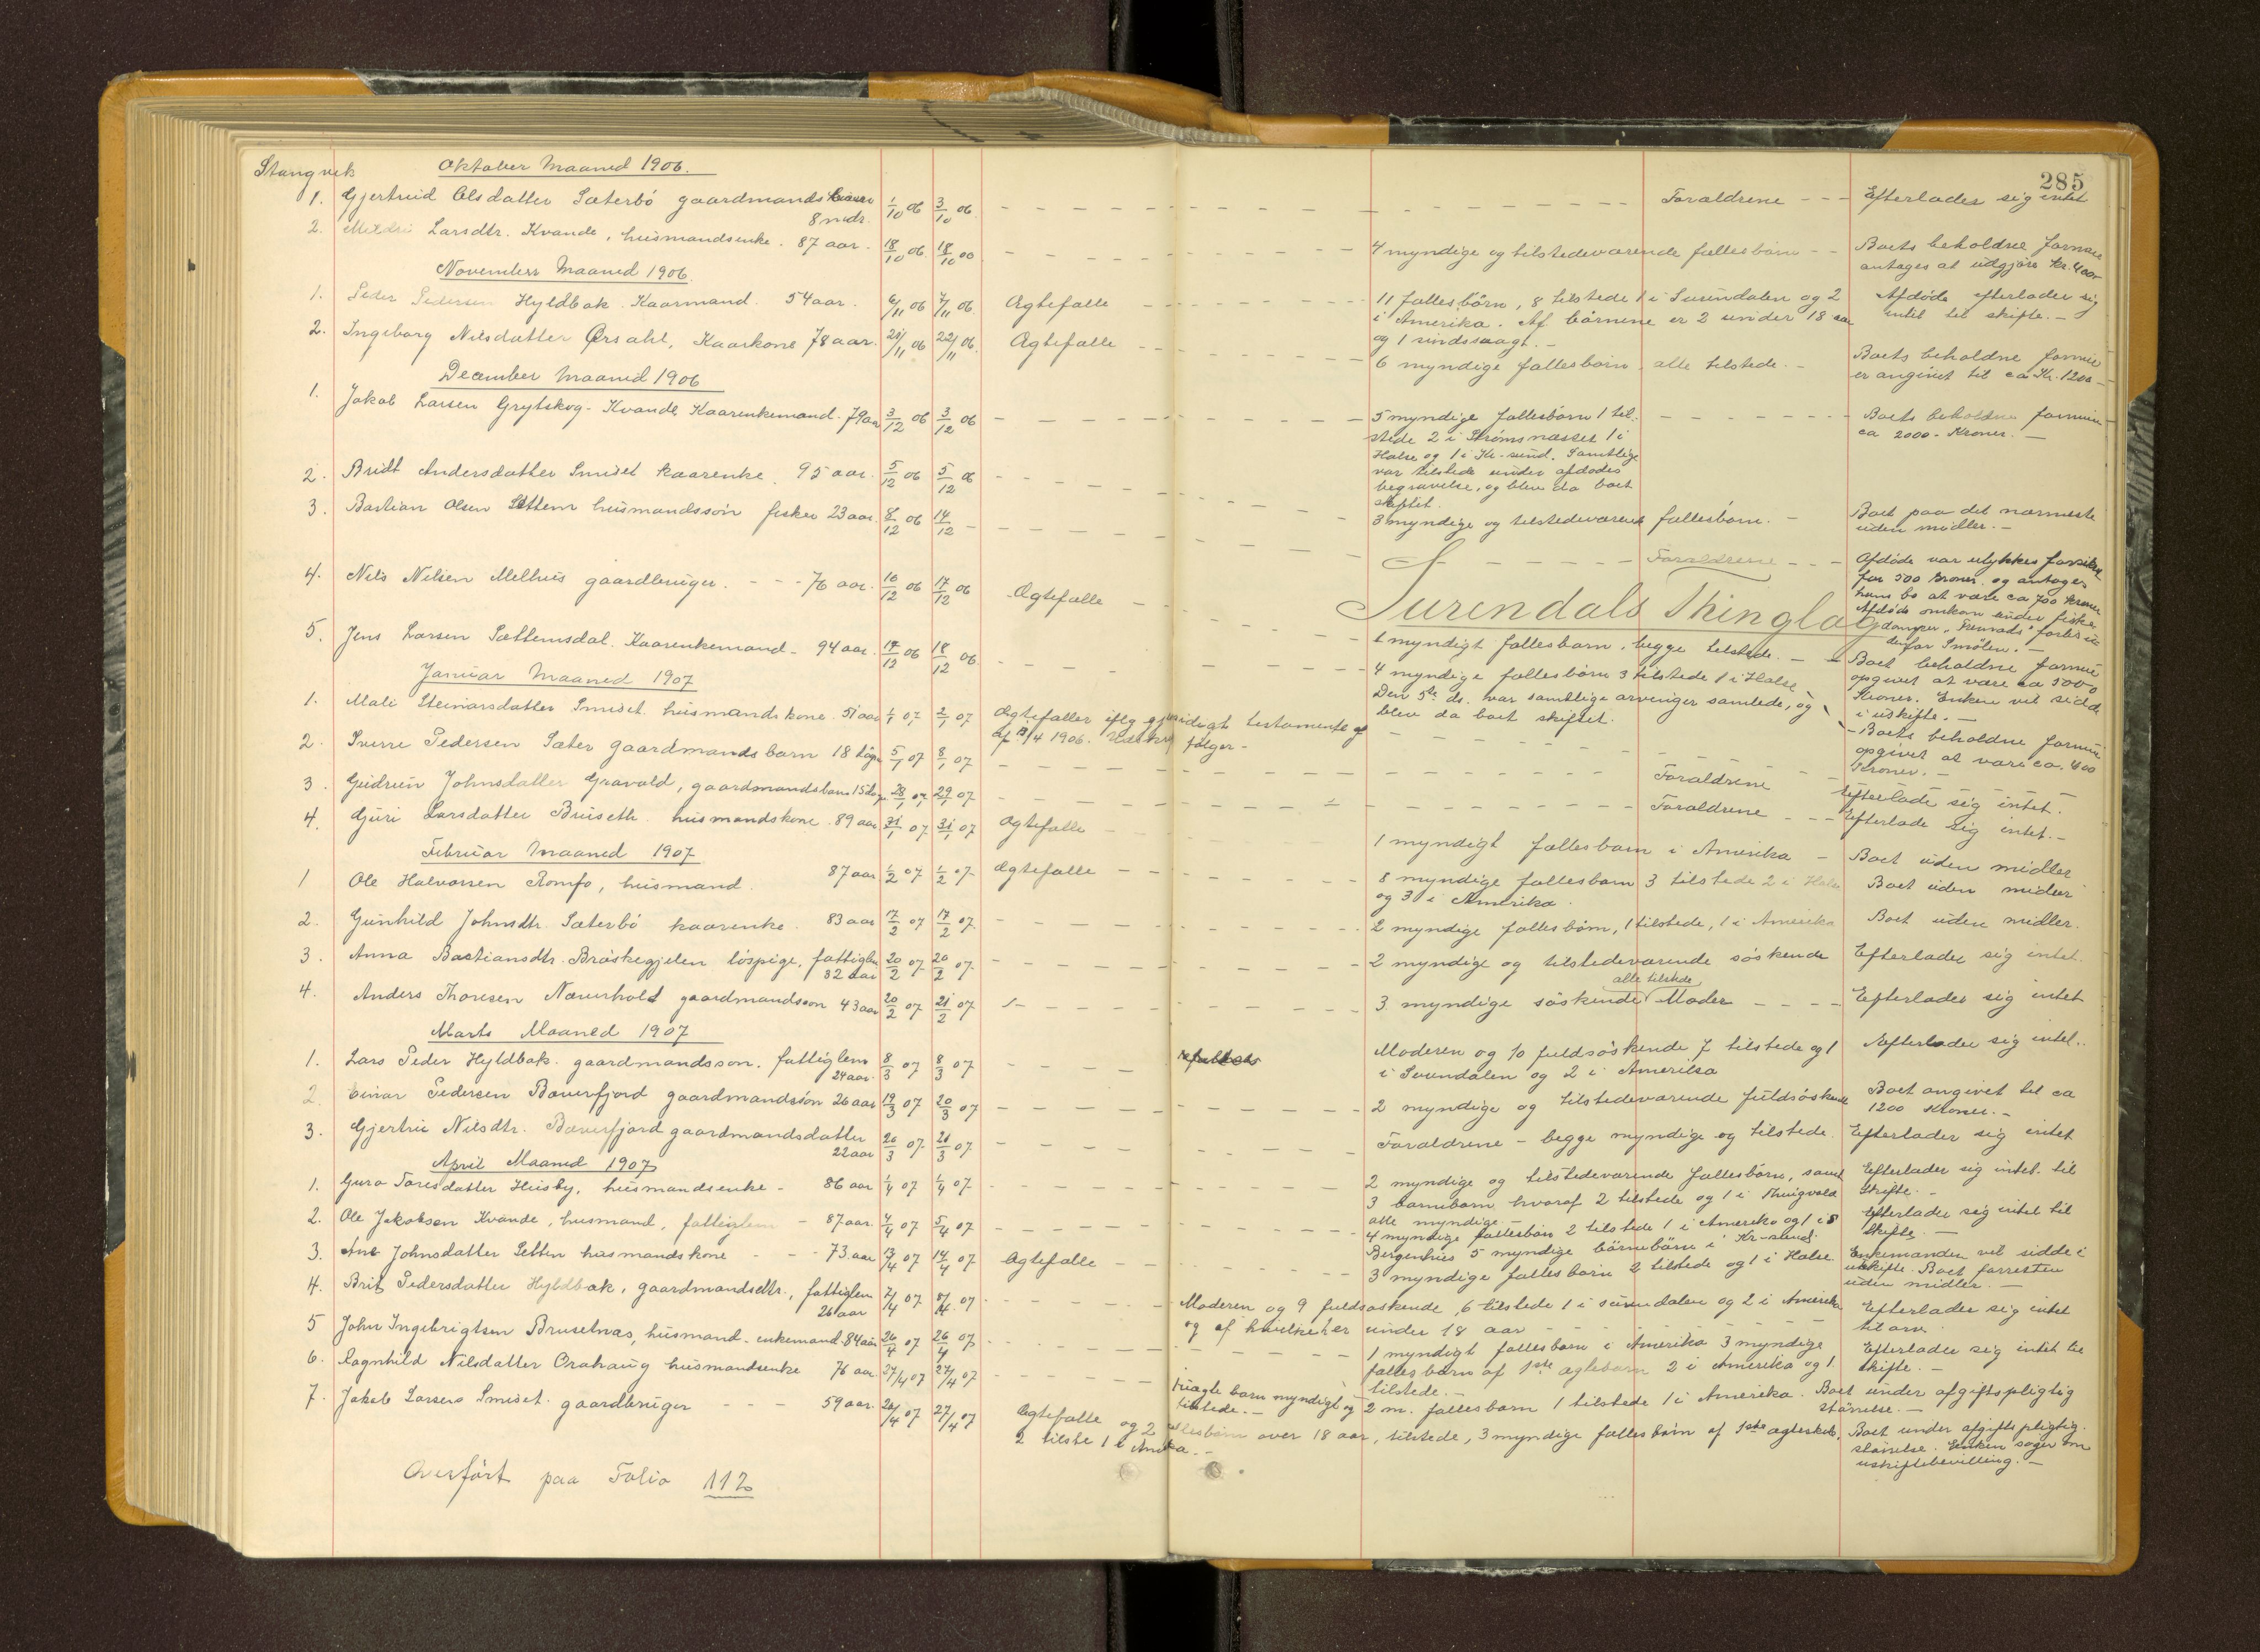 285
Stangvik Oktober Maaned 1906.
1. Gjertruid Olsdatter Sæterbö gaardmands 8 mdr. 1/10 06 3/10 06. Forældrene Efterlader sig intet
2. Larsdtr. Kvande, husmandsenke. 87 aar. 18/10 06. 18/10 4 myndige og tilstedeværende fællesbörn Boets beholdne formue
antages at udgjøre kr. 400
November Maaned 1906.
1. Peder Pedersen Hyldbak. Kaarmand. 54 aar. 6/11 06 7/11 06. Ægtefælle 11 fællesbörn, 8 tilstede 1 i Surendalen og 2 Afdøde efterlader sig
i Amerika. Af börnene er 2 under 18 aar intet til skifte.
og 1 sindssvagt.
2. Ingeborg Nilsdatter Ørsahl, Kaarkone 78 aar. 21/11 06 22/11 06. Ægtefælle 6 myndige fællesbörn alle tilstede. Boets beholdne formue
er angivet til ca Kr. 1200
December Maaned 1906
1. Jakob Larsen Grytskog-Kvande Kaarenkemand. 79 aar 3/12 06 3/12 06 5 myndige fællesbörn 1 til- Boets beholdne formue
stede 2 i Strömsnæsset 1 i ca 2000 - Kroner.
Halse og 1 i Kr-sund. Samtlige
var tilstede under afdødes
begravelse, og blev da boet
skiftet.
2. Bridt Andersdatter Smiset kaarenke. 95 aar. 5/12 06 5/12 06 3 myndige og tilstedeværend fællesbörn. Boet paa det nærmeste
uden midler.
3. Bastian Olsen Settem husmandssön fisker 23 aar. 8/12 06 14/12 Forældrene Afdøde var ulykkes forsikret
for 500 kroner og antages
hans bo at være ca 700 kroner
Afdøde omkom under fiske
Surendals Thinglag
4. Nils Nilsen Melhus gaardbruger. 76 aar. 16/12 06 17/12 06 Ægtefælle 1 myndigt fællesbarn, begge tilstede. Boet beholdne formue
opgivet at være ca 5000
Kroner. Enken vil sidde
i uskifte.
5. Jens Larsen Sættemsdal. Kaarenkemand. 94 aar. 17/12 06 18/12 06. 4 myndige fællesbörn 3 tilstede 1 i Halse
Den 5te ds. var samtlige arvinger samlede, og
blev da boet skiftet. Boets beholdne formue
opgivet at være ca. 400
Kroner.
Januar Maaned 1907
1. Mali Steinarsdatter Smiset. husmandskone. 51 aar 1/1 07 2/1 07 Ægtefæller iflg gjensidigt testamente af
2. Sverre Pedersen Sæter gaardmandsbarn 18 dage 5/1 07 8/1 07 Forældrene Efterlade sig intet.
3. Gudrun Johnsdatter Gravold, gaardmandsbarn 15 dage. 28/1 07 29/1 07. Forældrene Efterlade sig intet.
4. Guri Larsdatter Bruseth. husmandskone. 89 aar 31/1 07 31/1 07 Ægtefælle 1 myndigt fællesbarn i Amerika Boet uden midler
Februar Maaned 1907
1 Ole Halvorsen Romfo, husmand. 87 aar 1/2 07 1/2 07. Ægtefælle 8 myndige fællesbarn 3 tilstede 2 i Halse Boet uden midler
og 3 i Amerika.
2. Gunhild Johnsdtr. Sæterbö kaarenke. 83 aar 17/2 07 17/2 07. 2 myndige fællesbörn, 1 tilstede, 1 i Amerika Boet uden midler.
3. Anna Bastiansdtr. Bröskegjelen löspige, fattiglem 32 aar 20/2 07. 20/2 07. 2 myndige og tilstedeværende söskende Efterlader sig intet.
4. Anders Thoresen Næverholt gaardmandssön 43 aar 20/2 07 21/2 07 3. myndige söskende alle tilstede Moder Efterlader sig intet
Marts Maaned 1907
1. Lars Peder Hyldbak. gaardmandsson. fattiglem 24 aar. 8/3 07 8/3 07 Moderen og 10 fuldsöskende 7 tilstede og 1 Efterlader sig intet.
i Surendalen og 2 i Amerika
2. Einar Pedersen Bæverfjord gaardmandssön 26 aar 19/3 07 20/3 07 2 myndige og tilstedeværende fuldsöskende Boet angivet til ca
1200 Kroner.
3. Gjertru Nilsdtr. Bæverfjord gaardmandsdatter 22 aar 20/3 07. 21/3 07. Forældrene - begge myndige og tilstede. Efterlader sig intet
April Maaned 1907
1. Guro Toresdatter Husby, husmandsenke - 86 aar 1/4 07 1/4 07. 2 myndige og tilstedeværende fællesbörn, samt Efterlader sig intet til
3 barnebarn hvoraf 2 tilstede og 1 i Thingvold Skifte.
alle myndige.
2. Ole Jakobsen Kvande, husmand, fattiglem - 87 aar. 4/4 07 5/4 07 4 myndige fællesbörn 2 tilstede 1 i Amerika og 1 i S Efterlader sig intet til
Bergenhus 5 myndige börnebörn i Kr-sund. Skifte
3. Ane Johnsdatter Setten husmandskone 73 aar 13/4 07 14/4 07. Ægtefælle 3 myndige fællesbörn 2 tilstede og 1 i Halse. Enkemanden vil sidde i
uskifte. Boet forresten
uden midler.
4. Brit Pedersdatter Hyldbak, gaardmandsdtr., fattiglem 26 aar 7/4 07 8/4 07 Moderen og 9 fuldsøskende, 6 tilstede 1 i surendalen og 2 i Amerika Efterlader sig intet
og af hvilke her under 18 aar til arv.
5 John Ingebrigtsen Bruselnæs, husmand-enkemand 84 aar 26/4 07 26/4 07 1 myndigt fællesbarn i Amerika 3 myndige Efterlader sig intet til
fællesbarn af 1ste ægtebarn 2 i Amerika og 1 skifte.
tilstede.
6. Ragnhild Nilsdatter Orahaug husmandsenke 76 aar. 27/4 07 27/4 07 uægte barn myndigt og 2 m. fællesbarn 1 tilstede 1 i Amerika. Boet under afgiftspligtig
tilstede. størrelse.
7. Jakob Larsens Smiset. gaardbruger 59 aar. 26/4 07 27/4 07 Ægtefælle og 2 fællesbörn over 18 aar, tilstede, 3 myndige fællesbörn af 1ste ægteskab, Boet under afgiftspligtig
2 tilste 1 i Amerika. størrelse. Enken søger om
uskiftebevilling.
Overfört paa Folio 112